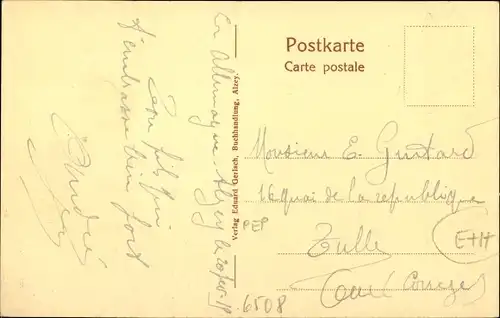 En Allemagne Alzey le 20
Ton fils qui
t'embrasse bien fort
André
Verlag Eduard Gerlach, Buchhandlung, Alzey.
Postkarte
Carte postale
Monsieur E. Guitard
16 quai de la republique
Tulle
Corrèze
PEP
6508
E+H